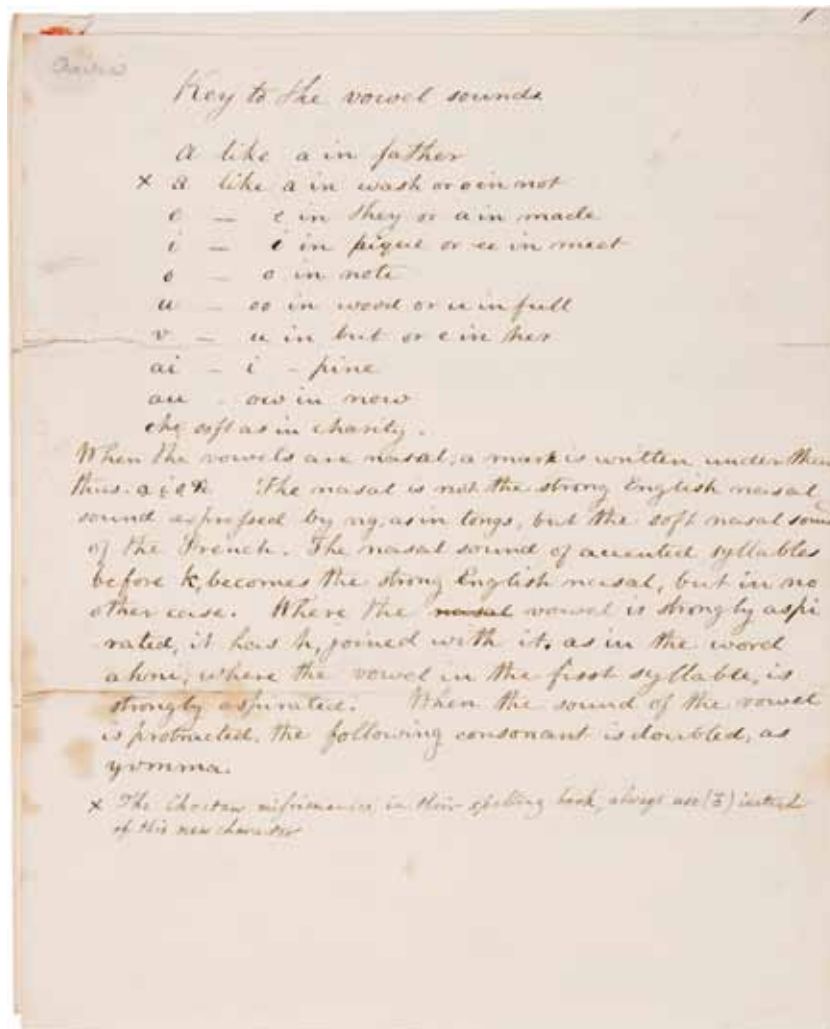 1
Key to the vowel sounds
A like a in father
× a like a in wash or o in not
e — e in they or a in made
i — i in pique or ee in meet
o — o in note
u — oo in wood or u in full
v — u in but or e in her
ai – i – pine
au – ow in now
ch, soft as in charity.
When the vowels are nasal, a mark is written under them
thus. a̱ i̱ o̱ u̱ The nasal is not the strong English nasal
sound expressed by ng, as in tongs, but the soft nasal sound
of the French. The nasal sound of accented syllables
before k, becomes the strong English nasal, but in no
other case. Where the nasal vowel is strongly aspi
rated, it has h, joined with it, as in the word
where the vowel in the first syllable, is
strongly aspirated. When the sound of the vowel
is protracted, the following consonant is doubled, as
yvmma.
× The Choctaw missionaries, in their spelling book, always use instead
of this new character